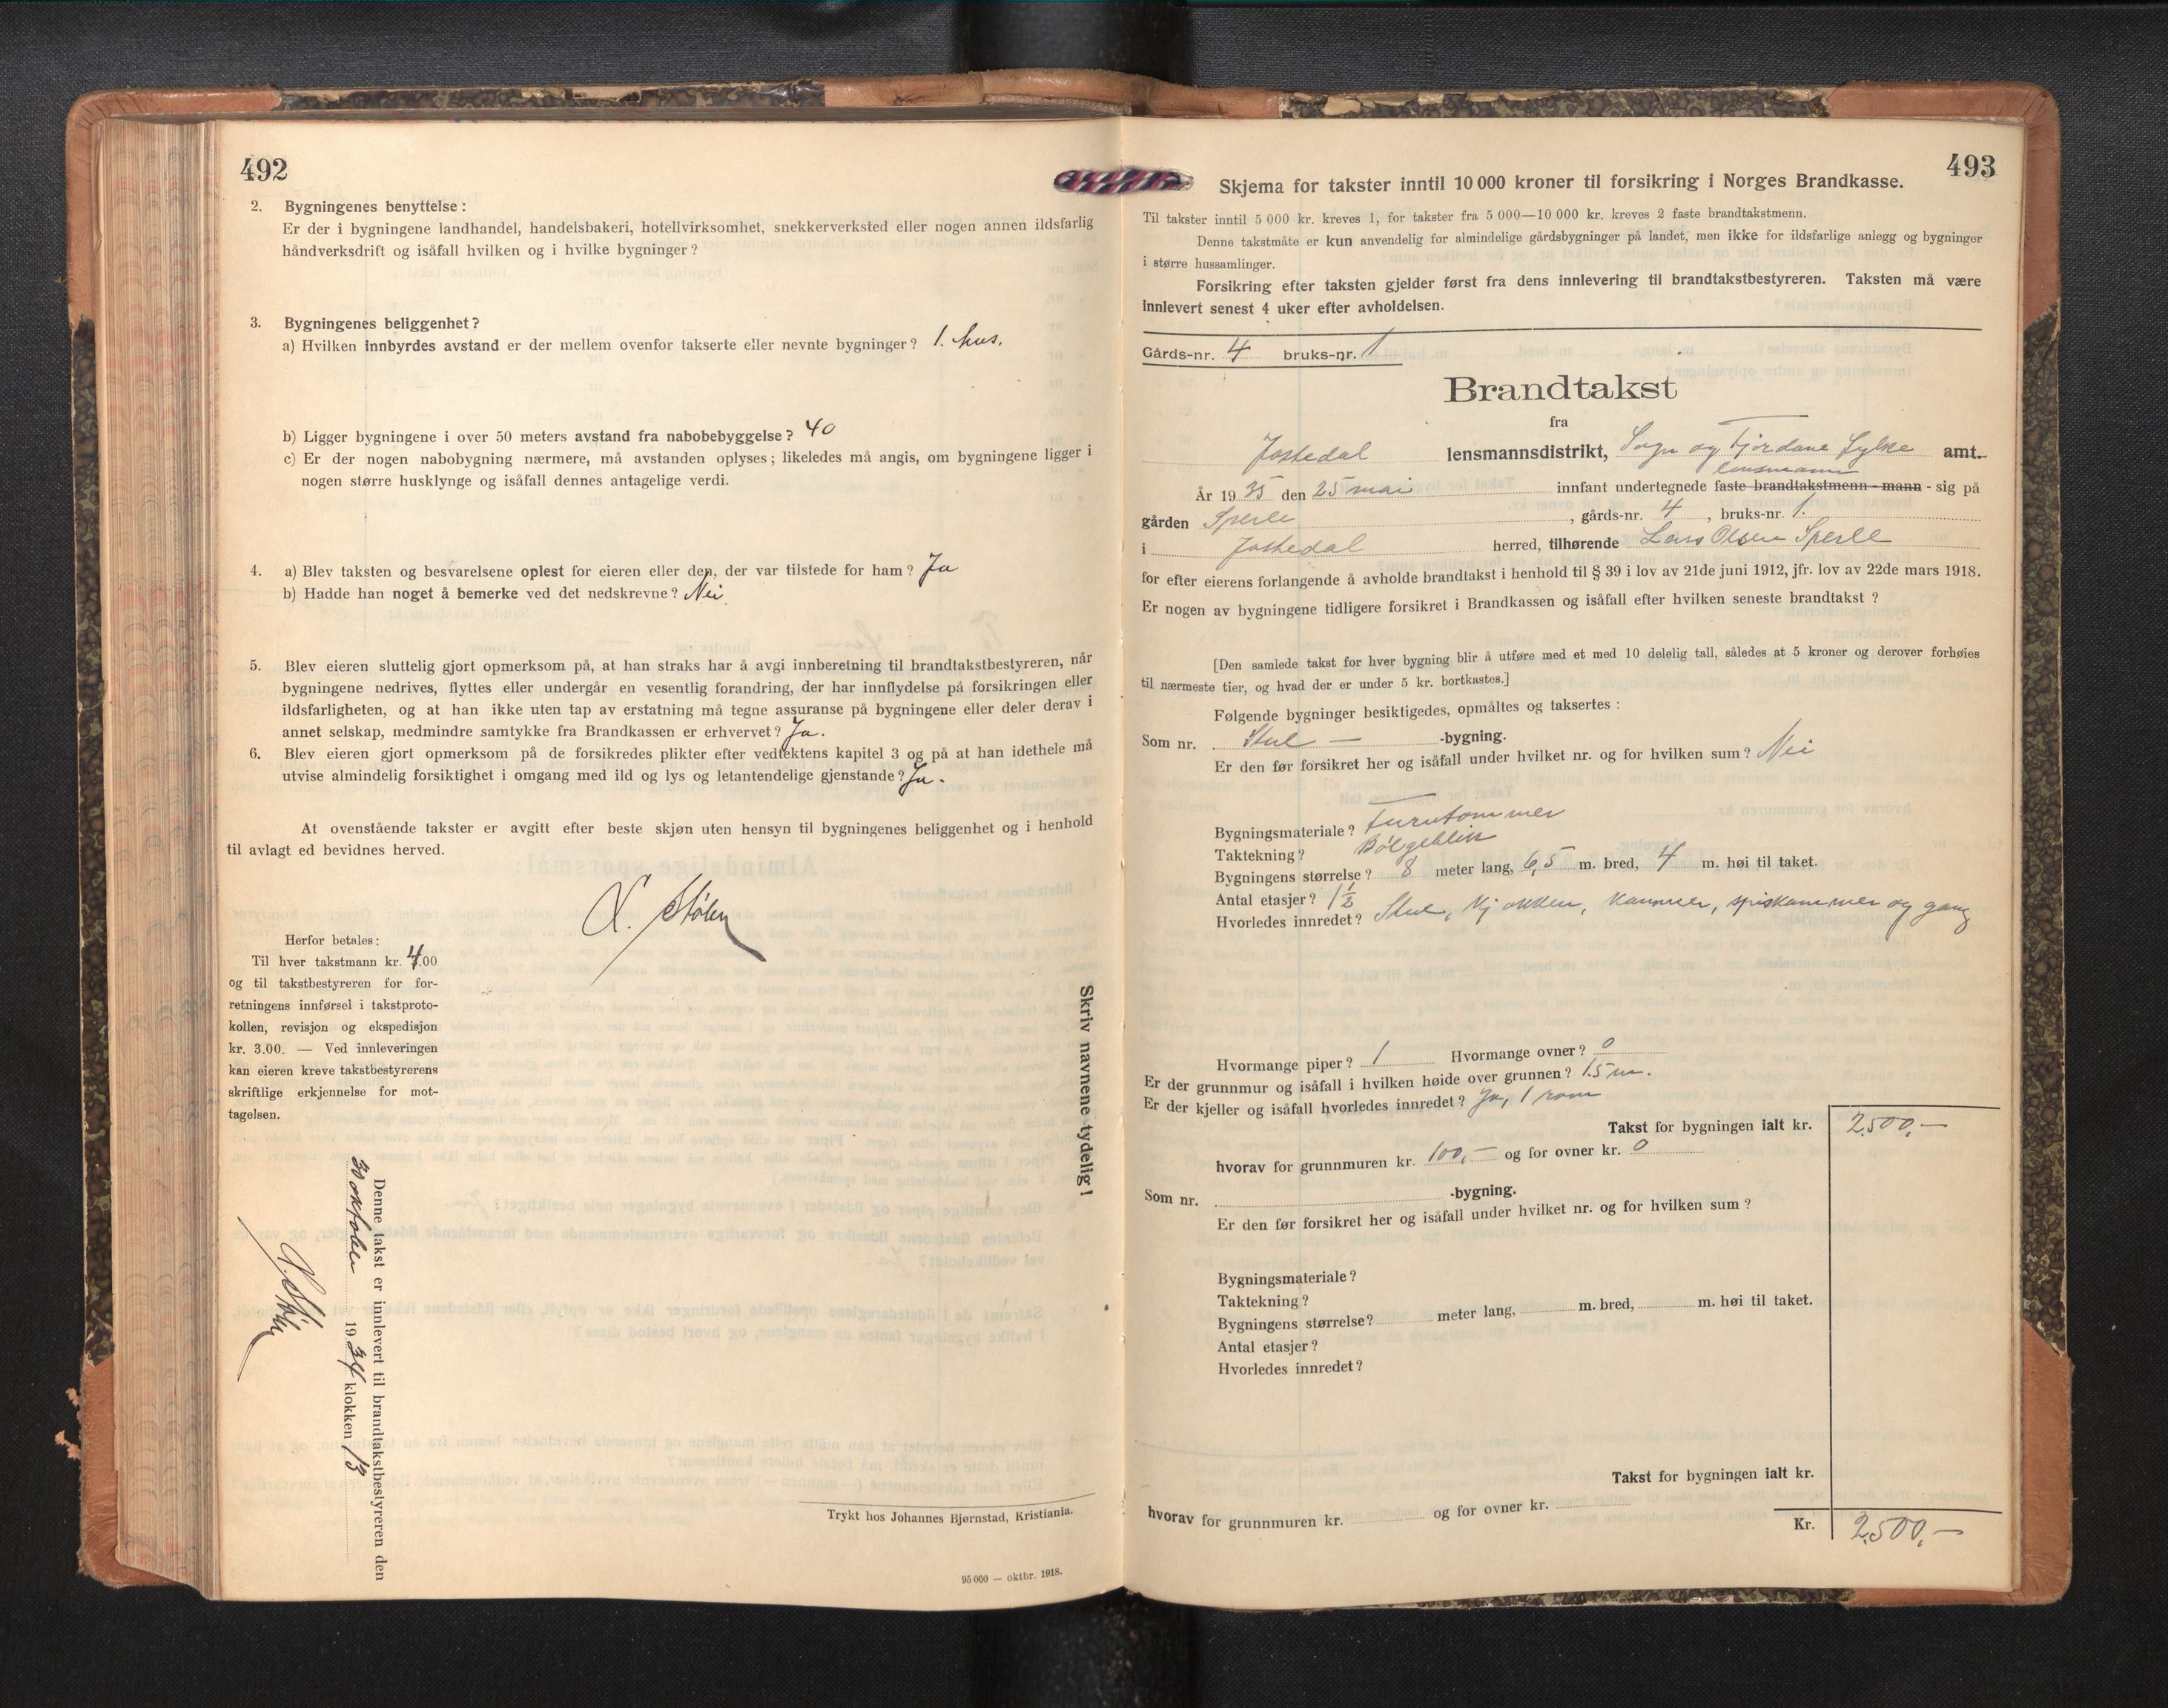 492
2. Bygningenes benyttelse:
Er der i bygningene landhandel, handelsbakeri, hotellvirksomhet, snekkerverksted eller nogen annen ildsfarlig
håndverksdrift og isåfall hvilken og i hvilke bygninger?
3. Bygningenes beliggenhet?
a) Hvilken innbyrdes avstand er der mellem ovenfor takserte eller nevnte bygninger? 1. hus.
b) Ligger bygningene i over 50 meters avstand fra nabobebyggelse? 40
c) Er der nogen nabobygning nærmere, må avstanden oplyses; likeledes må angis, om bygningene ligger i
nogen større husklynge og isåfall dennes antagelige verdi.
4. a) Blev taksten og besvarelsene oplest for eieren eller den, der var tilstede for ham? Ja
b) Hadde han noget å bemerke ved det nedskrevne? Nei
5. Blev eieren sluttelig gjort opmerksom på, at han straks har å avgi innberetning til brandtakstbestyreren, når
bygningene nedrives, flyttes eller undergår en vesentlig forandring, der har innflydelse på forsikringen eller
ildsfarligheten, og at han ikke uten tap av erstatning må tegne assuranse på bygningene eller deler derav i
annet selskap, medmindre samtykke fra Brandkassen er erhvervet? Ja.
6. Blev eieren gjort opmerksom på de forsikredes plikter efter vedtektens kapitel 3 og på at han idethele må
utvise almindelig forsiktighet i omgang med ild og lys og letantendelige gjenstande? Ja.
At ovenstående takster er avgitt efter beste skjøn uten hensyn til bygningenes beliggenhet og i henhold
til avlagt ed bevidnes herved.
X. Stølen
Herfor betales:
Til hver takstmann kr. 4.00
og til takstbestyreren for for-
retningens innførsel i takstproto-
kollen, revisjon og ekspedisjon
kr. 3.00. — Ved innleveringen
kan eieren kreve takstbestyrerens
skriftlige erkjennelse for mot-
tagelsen.
Skriv navnene tydelig!
Denne takst er innlevert til brandtakstbestyreren den
30 oktober 1934 klokken 13
X. Stølen
Trykt hos Johannes Bjørnstad, Kristiania.
95 000 — oktbr. 1918.
493
Skjema for takster inntil 10 000 kroner til forsikring i Norges Brandkasse.
Til takster inntil 5 000 kr. kreves 1, for takster fra 5 000—10 000 kr. kreves 2 faste brandtakstmenn.
Denne takstmåte er kun anvendelig for almindelige gårdsbygninger på landet, men ikke for ildsfarlige anlegg og bygninger
i større hussamlinger.
Forsikring efter taksten gjelder først fra dens innlevering til brandtakstbestyreren. Taksten må være
innlevert senest 4 uker efter avholdelsen.
Gårds-nr. 4 bruks-nr. 1
Brandtakst
fra
Jostedal lensmannsdistrikt, Sogn og Fjordane Fylke amt.
lensmann
År 1935 den 25 mai innfant undertegnede faste brandtakstmenn - mann - sig på
gården Sperle, gårds-nr. 4, bruks-nr. 1.
i Jostedal herred, tilhørende Lars Olsen Sperle
for efter eierens forlangende å avholde brandtakst i henhold til § 39 i lov av 21de juni 1912, jfr. lov av 22de mars 1918.
Er nogen av bygningene tidligere forsikret i Brandkassen og isåfall efter hvilken seneste brandtakst?
[Den samlede takst for hver bygning blir å utføre med et med 10 delelig tall, således at 5 kroner og derover forhøies
til nærmeste tier, og hvad der er under 5 kr. bortkastes.]
Følgende bygninger besiktigedes, opmåltes og taksertes:
Som nr. Stue — -bygning.
Er den før forsikret her og isåfall under hvilket nr. og for hvilken sum? Nei
Bygningsmateriale? Furutømmer
Taktekning? Bølgeblikk
Bygningens størrelse? 8 meter lang, 6,5 m. bred, 4 m. høi til taket.
Antal etasjer? 1½
Hvorledes innredet? Stue, kjøkken, kammer, spiskammer og gang
Hvormange piper? 1 Hvormange ovner? 0
Er der grunnmur og isåfall i hvilken høide over grunnen? 1.5 m.
Er der kjeller og isåfall hvorledes innredet? Ja, 1 rom
Takst for bygningen ialt kr. 2500,—
hvorav for grunnmuren kr. 100,— og for ovner kr. 0
Som nr. -bygning.
Er den før forsikret her og isåfall under hvilket nr. og for hvilken sum?
Bygningsmateriale?
Taktekning?
Bygningens størrelse? meter lang, m. bred, m. høi til taket.
Antal etasjer?
Hvorledes innredet?
Takst for bygningen ialt kr.
hvorav for grunnmuren kr. og for ovner kr.
Kr. 2500,—